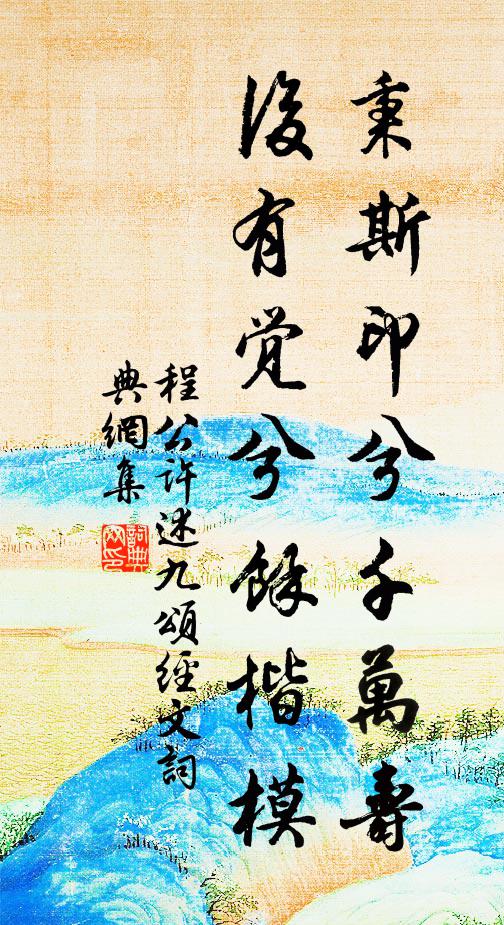 秉斯印兮千萬壽
後有覚兮餘楷模
程公许述九頌經文詞
典網集
詞典网印